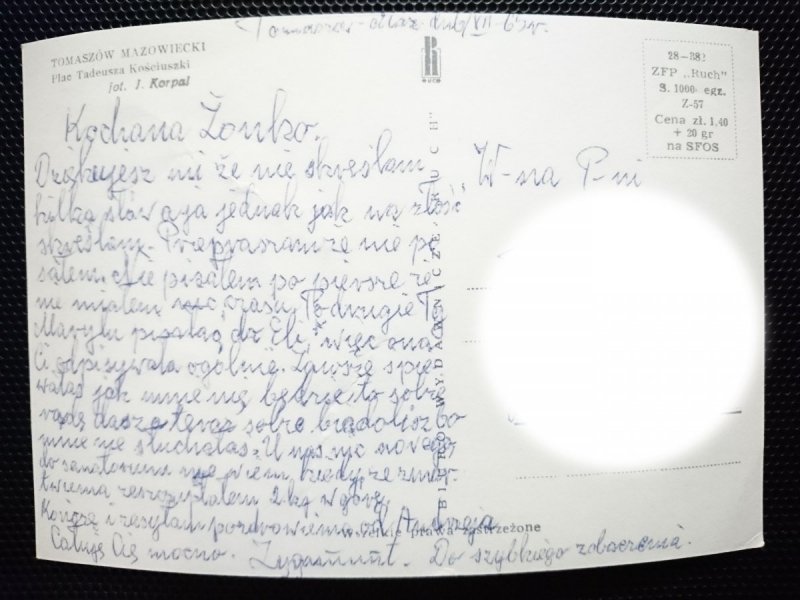 Tomaszów dnia VII. 65r.
TOMASZÓW MAZOWIECKI
Plac Tadeusza Kościuszki
fot. J. Korpal
R
RUCH
28-382
ZFP „Ruch"
S. 1000 egz.
Z-57
Cena zł. 1,40
+ 20 gr
na SFOS
Kochana Żonko.
Dziękujesz mi że nie skreślam
kilka słów a ja jednak jak na złość
skreślam. Przepraszam że nie pi
sałem. Nie pisałem po pierwsze że
nie miałem nic czasu. To drugie Ty
Marylu pisałaś do Eli, więc ona
Ci odpisywała ogólnie. Zawsze śpie
wałaś jak mnie nie będzie to sobie
radę dasz a teraz sobie
mnie nie słuchałaś. U nas nic nowego
do sanatorium nie wiem kiedy, ze zmar
twienia 2 kg w górę.
Kończę i zasyłam pozdrowienia od
Całuję Cię mocno. Zygmunt. Do szybkiego zobaczenia.
BIURO WYDAWNICZE „RUCH"
Wszelkie prawa zastrzeżone
W-na P-ni